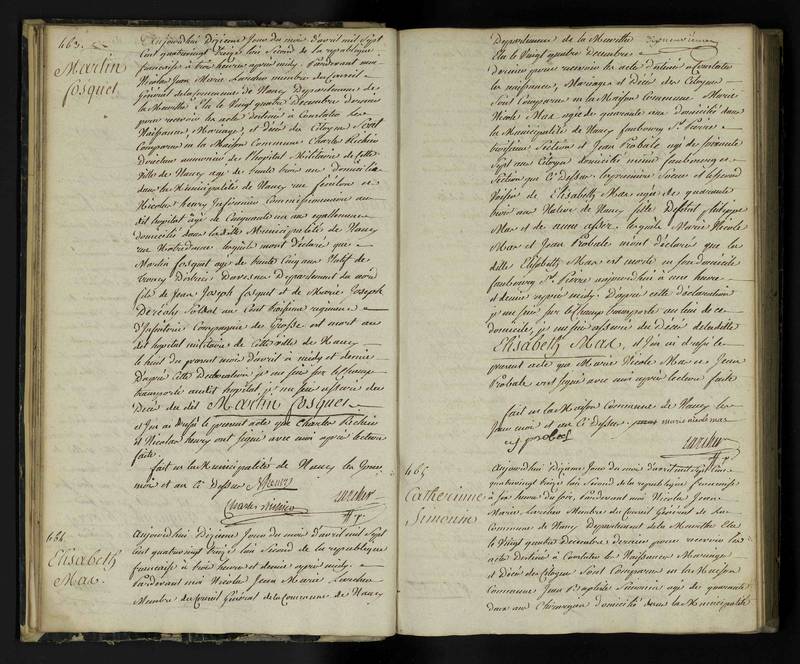 463.
Martin
Cosquet
Aujourdhui Dixieme Jour du mois d'avril mil Sept
Cent quatrevingt treize l'an Second de la republique
francaise à trois heures après midy. Pardevant moi
Nicolas Jean Marie Larcher membre du Conseil
Général de la Commune de Nancy Departement de
la Meurthe Elu le Vingt quatre Decembre dernier
pour recevoir les acte destiné à Constater les
Naissance, Mariage, et décès des Citoyens Sont
Comparu en la Maison Commune Charles Richier
Directeur de l'hopital Militaire de Cette
Ville de Nancy agé de trente trois ans Domicilié
dans la Municipalité de Nancy rue et
Nicolas henry Infirmier Commissionnaire au
dit hopital agé de Cinquante un ans egallement
domicilié dans la dite Municipalité de Nancy
rue Notre Dame lesquels mont déclaré que
Martin Cosquet agé de trente Cinq ans Natif de
District Davesnes Departement du nord
fils de Jean Joseph Cosquet et de Marie Joseph
Soldat au Cent troisieme regiment
d'Infanterie Compagnie de Grosse est mort au
dit hopital militaire de Cette ville de Nancy
le huit du present mois d'avril à midy et demie
D'après Cette Declaration je me suis sur le Champ
transporté audit hopital, je me suis assuré du
Décès du dit Martin Cosquet
et J'en ai Dressé le present acte que Charles Richier
et Nicolas henry ont signé avec moi après lecture
faite
fait en la Municipalité de Nancy les Jour
mois et an Ci Dessus Henry
Charles Richier Larcher
464
Elisabeth
Max.
Aujourdhui Dixieme Jour du mois d'avril mil Sept
Cent quatrevingt treize l'an Second de la republique
francaise à trois heures et demie après midy.
Pardevant moi Nicolas Jean Marie Larcher
Membre du Conseil Général de la Commune de Nancy
Departement de la Meurthe
Elu le Vingt quatre Decembre
dernier pour recevoir les acte destiné à Constater
les naissance, Mariage et Décès des Citoyens
Sont Comparu en la Maison Commune Marie
Nicole Max agée de quarante ans domiciliée dans
la Municipalité de Nancy faubourg St. Pierre
troisieme Section et Jean Probale agé de soixante
Sept ans Citoyen domicilié même faubourg et
Section que Ci dessus le premiere Soeur et le second
Voisin de Elisabeth Max agée de quarante
trois ans Native de Nancy fille Defunt philippe
Max et de lesquels Marie Nicole
Max et Jean Probale m'ont déclaré que la
ditte Elisabeth Max est morte en son domicile
faubourg St. Pierre aujourdhui à une heure
et demie après midy. D'après cette déclaration
je me suis sur le champ transporté au lieu de ce
domicile, je me suis assuré du Décès de la ditte
Elisabeth Max, et J'en ai dressé le
présent acte que Marie Nicole Max et Jean
Probale ont signé avec moi après lecture faite
fait en la Maison Commune de Nancy les
Jour mois et an Ci Dessus marie nicole max
Larcher
465
Catherinne
Simonin
Aujourdhui Dixieme Jour du mois d'avril mil Sept Cent
quatrevingt treize l'an Second de la republique francaise
à Six heures du Soir, Pardevant moi Nicolas Jean
Marie Larcher Membre du Conseil Général de la
Commune de Nancy Departement de la Meurthe Elu
le Vingt quatre Decembre Dernier pour recevoir les
acte Destiné à Constater les Naissances Mariage
et Décès des Citoyens Sont Comparu en la Maison
Commune Jean Baptiste Simonin agé de quarante
deux ans Chirurgien domicilié dans la Municipalité